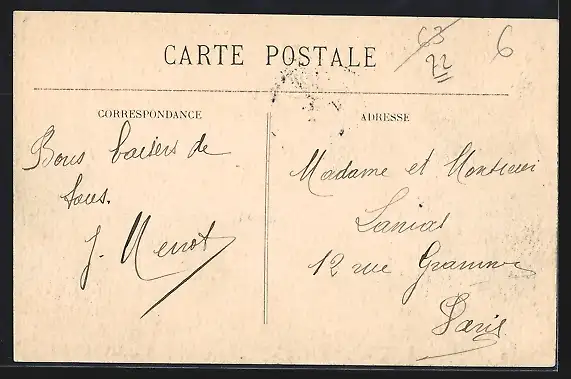 63
22
6
CARTE POSTALE
CORRESPONDANCE
ADRESSE
Bons baisers de
tous.
J. Menot
Madame et Monsieur
12 rue
Paris